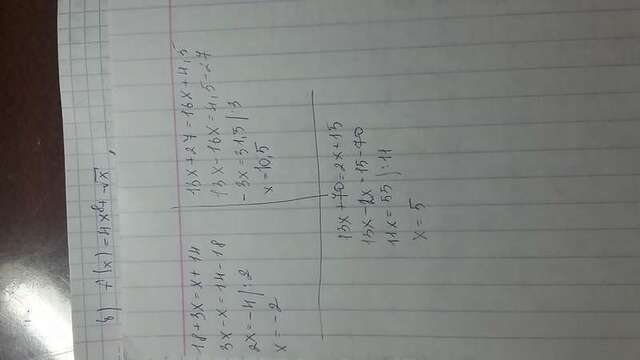 b) f(x) = 4x⁸ + √x,
18 + 3x = x + 14
3x - x = 14 - 18
2x = -4 / : 2
x = -2
13x + 27 = 16x + 4,5
13x - 16x = 4,5 - 27
- 3x = 31,5 / 3
x = 10,5
13x + 70 = 2x + 15
13x - 2x = 15 - 70
11x = 55 / : 11
x = 5